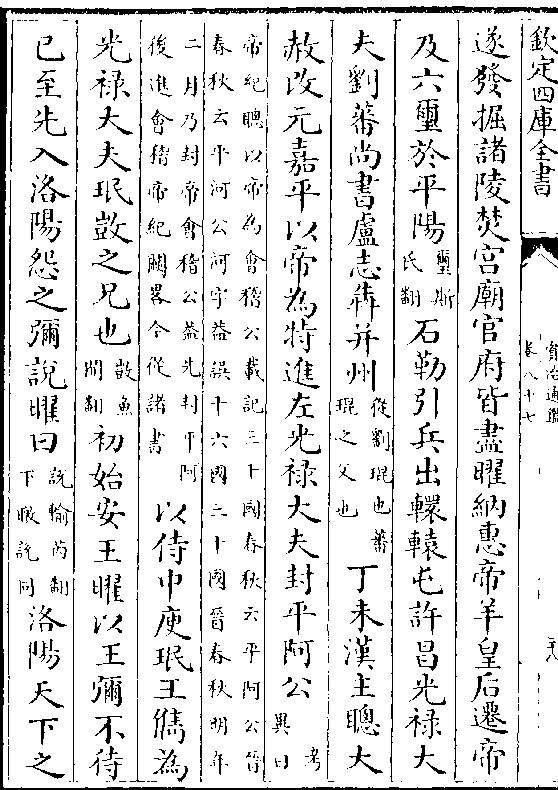 欽定四庫全書
資治通鑑
卷八十七
遂發掘諸陵焚宮廟官府皆盡曜納惠帝羊皇后遷帝
及六璽於平陽璽斯氏翻石勒引兵出轘轅屯許昌光祿大
夫劉蕃尚書盧志犇并州從劉琨也蕃琨之父也丁未漢主聰大
赦改元嘉平以帝為特進左光祿大夫封平阿公考異曰
帝紀聰以帝為會稽公載記三十國春秋云平阿公晉
春秋云平河公訶字葢誤十六國三十國晉春秋明年
二月乃封帝會稽公葢先封平阿
後進會稽帝紀闕畧今從諸書以侍中庾珉王儁為
光祿大夫珉敳之兄也敳魚開翻初始安王曜以王彌不待
已至先入洛陽怨之彌說曜曰說輸芮翻下暾說同洛陽天下之